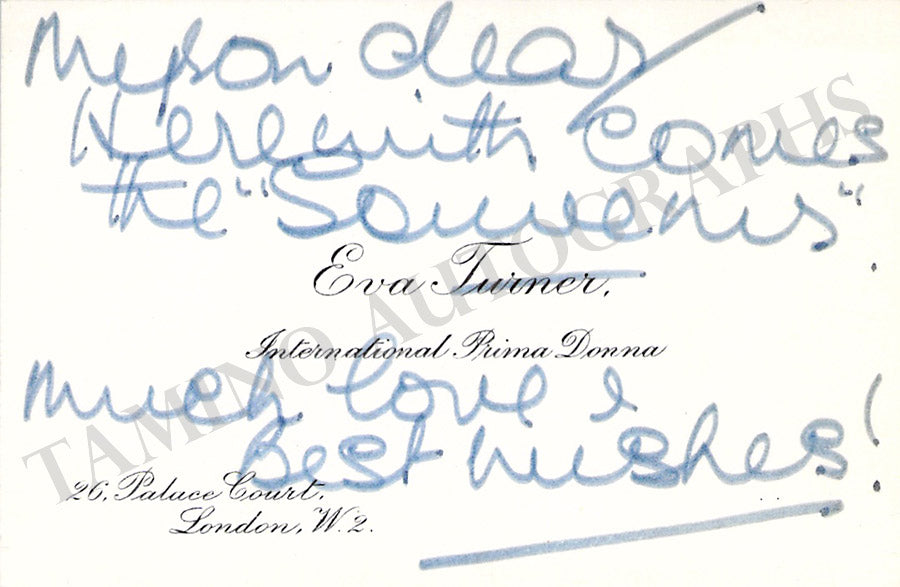 Myron dear
Herewith comes
the "Souvenirs".
Eva Turner.
International Prima Donna
much love &
Best wishes!
26, Palace Court,
London, W.2.
TAMINO AUTOGRAPHS